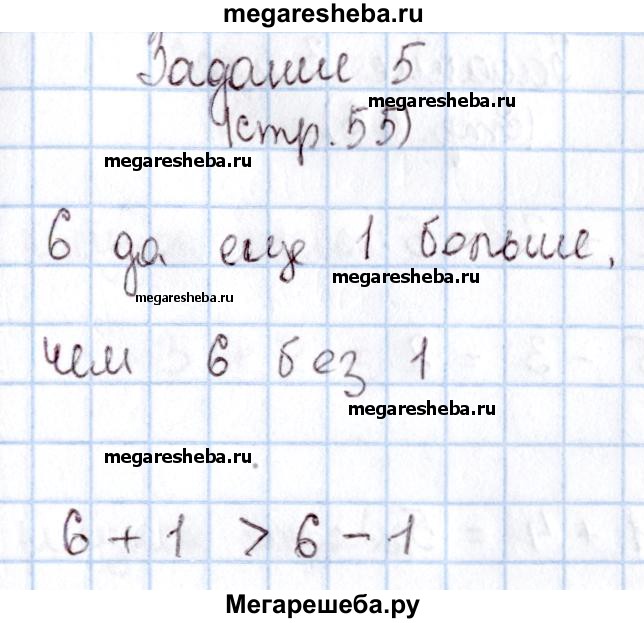 megaresheba.ru
Задание 5
megaresheba.ru
(стр. 55)
megaresheba.ru
6 да еще 1 больше,
megaresheba.ru
megaresheba.ru
чем 6 без 1
megaresheba.ru
megaresheba.ru
6 + 1 > 6 - 1
Мегарешеба.ру